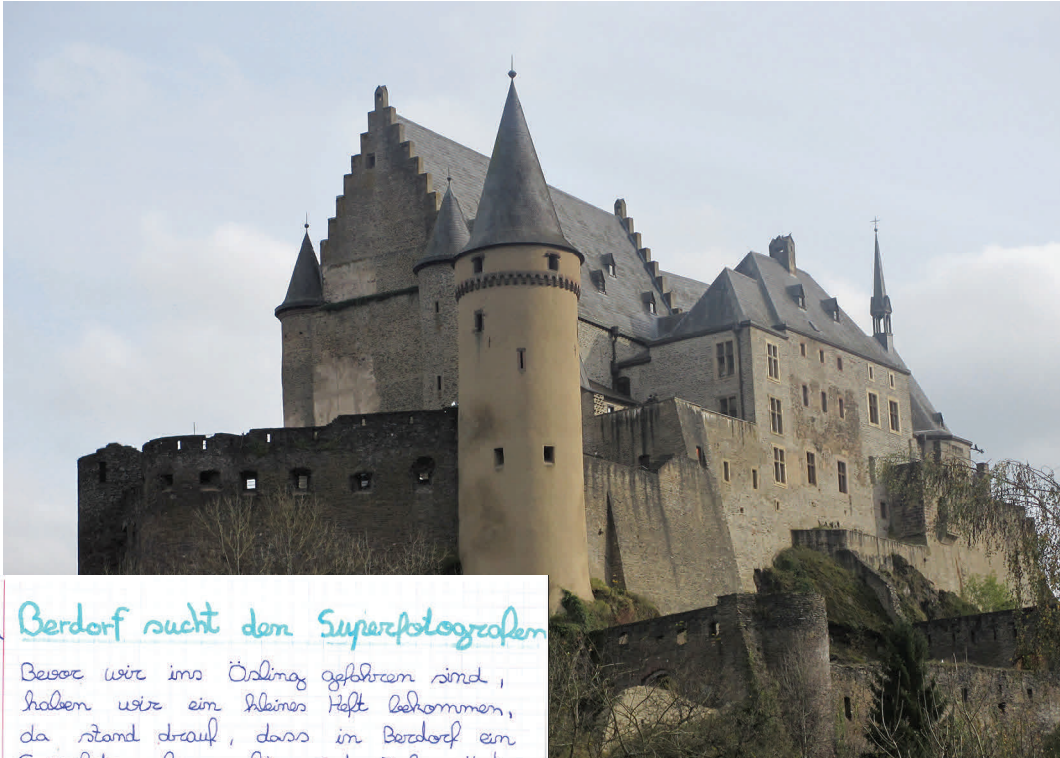 Berdorf sucht den Superfotografen
Bevor wir ins Ösling gefahren sind,
haben wir ein kleines Heft bekommen,
da stand drauf, dass in Berdorf ein